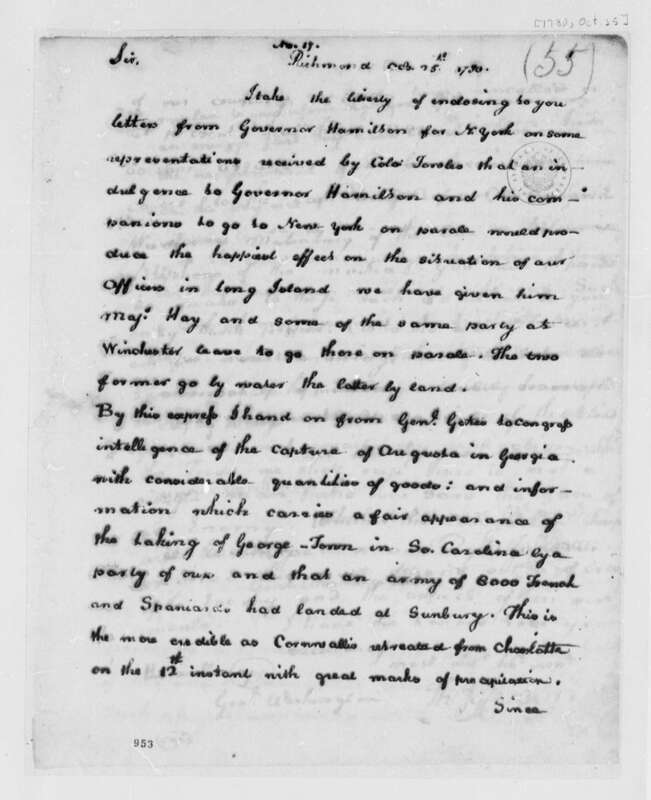 [1780, Oct 25]
No. 17.
Sir, Richmond Octo. 25th. 1780.
(55)
I take the liberty of enclosing to you
letters from Governor Hamilton for N York on some
representations received by Colo Towles that an in-
dulgence to Governor Hamilton and his com-
panions to go to New York on parole would pro-
duce the happiest effect on the situation of our
Officers in long Island we have given him
Majr. Hay and some of the same party at
Winchester leave to go there on parole. The two
former go by water the latter by land.
By this express I hand on from Genl. Gates to Congress
intelligence of the capture of Augusta in Georgia
with considerable quantities of goods: and infor-
mation which carries a fair appearance of
the taking of George-Town in So. Carolina by a
party of ours and that an army of 8000 French
and Spaniards had landed at Sunbury. This is
the more credible as Cornwallis retreated from Charlotte
on the 12th instant with great marks of precipitation.
Since
Genl. Washington
953